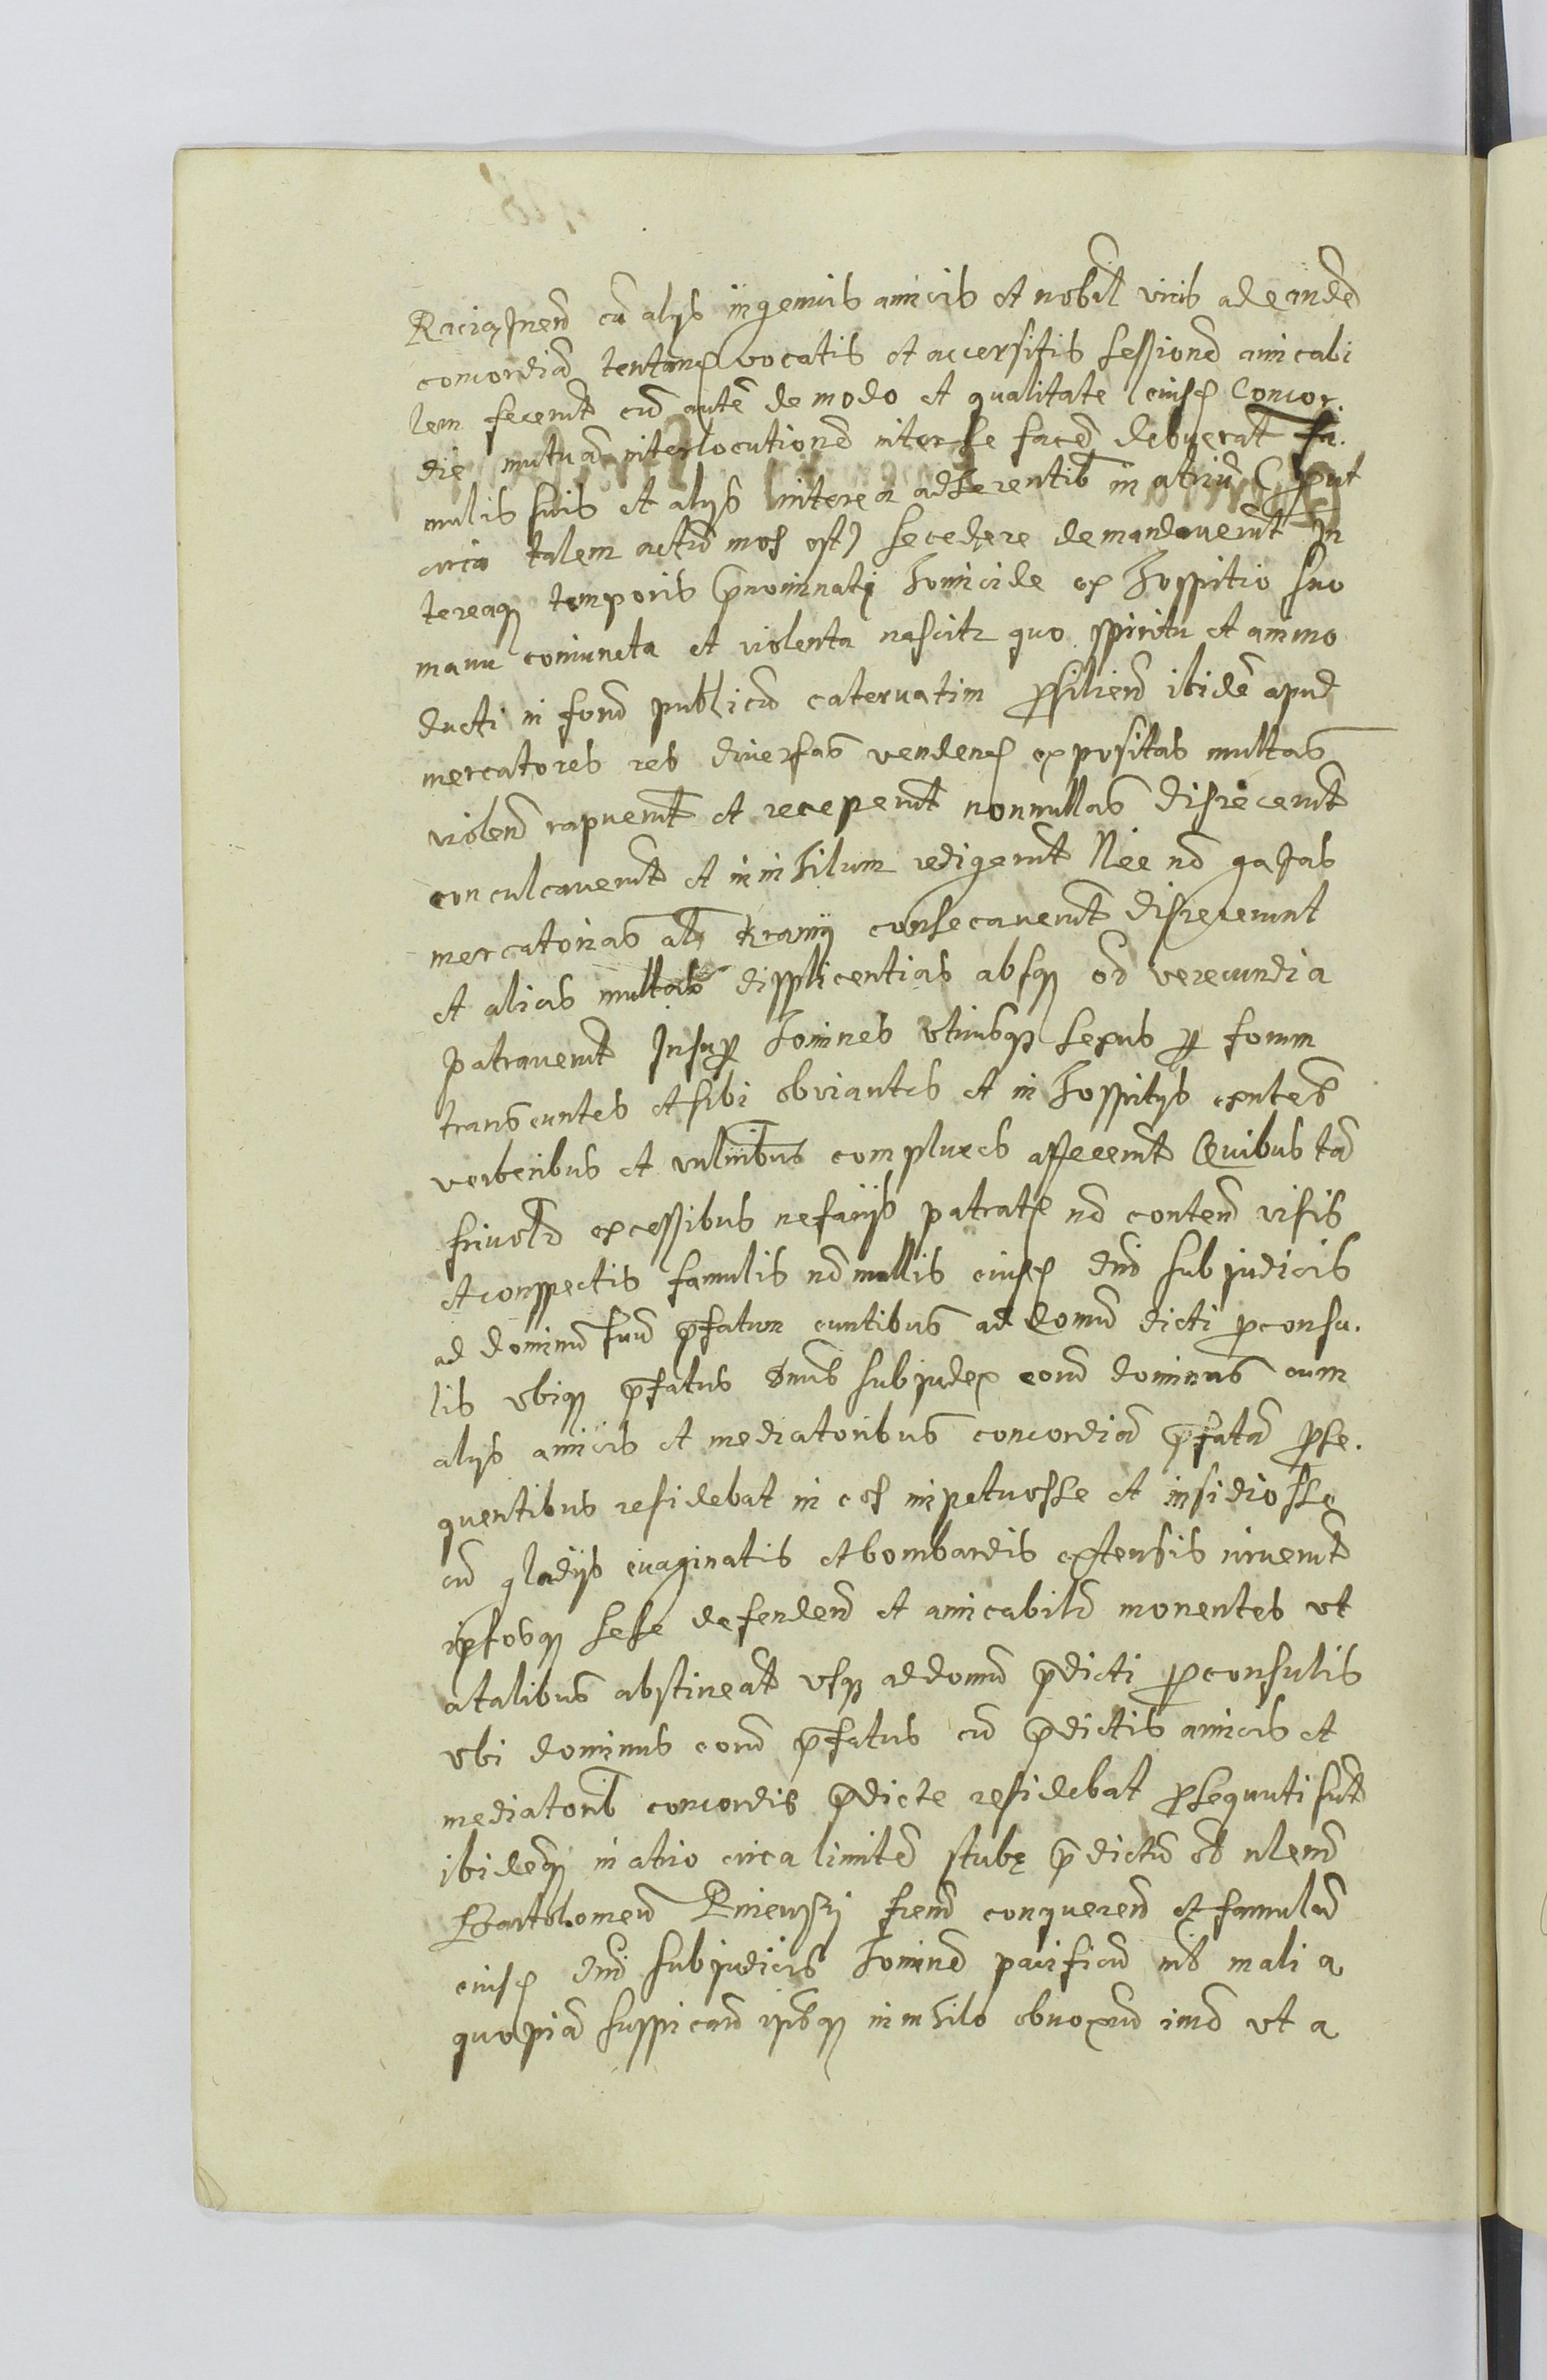 concordiã tentand vocatis et accersitis sessionẽ amicabi
lem fecerũt cũ autẽ de modo et qualitate eiusd Concor.
die mutuã interlocutionẽ inter se facẽ debuerãt fa.
mulis suis et alijs interea adherentib in atriũ (prout
circa talem actũ mos est) secedere demandaverũt In
tereaq temporis prenominati homicide ex hospitio suo
manu coniuncta et violenta nescitr quo spiritu et animo
ducti in forũ publicũ catervatim prosilienđ ibidẽ apud
mercatores res diversas vendend expositas multas
violenđ rapuerũt et receperũt nonnullas disiecerũt
conculcaverũt et in nihilum redigerũt Nec nõ gazas
mercatorias als Kramij consecaverũt disiecerunt
et alias multas displicentias absq oĩ verecundia
patraverũt Insup homines utriusq sexus p forum
transeuntes et sibi obviantes et in hospitijs exntes
verberibus et vulnĩbus complures affecerũt Quibus tã
frivolĩs excessibus nefarijs patratis nõ contenđ visis
et conspectis famulis nõnullis eiusd dnĩ subiudicis
ad dominũ suũ prefatum euntibus ad domũ dicti proconsu.
lis ubiq prefatus dnus subiudex eorũ dominus cum
alijs amicis et mediatoribus concordiã prefatã prose.
quentibus residebat in eos impetuosse et insidiosse
cũ gladijs evaginatis et bombardis extensis irruerũt
ipsosq sese defendenđ et amicabilr monentes ut
a talibus abstineãt usq ad domũ predicti proconsulis
ubi dominus eorũ prefatus cũ predictis amicis et
mediatorib concordie predicte residebat prosequuti sunt
ibidemq in atrio circa limitẽ stubę predictũ olim
Bartolomeũ frẽm conquerenđ et famulũ
eiusd dnĩ subiudicis hominẽ pacificũ nil mali a
quopiã suspicanđ ipisq in nihilo obnoxiũ imo ut a